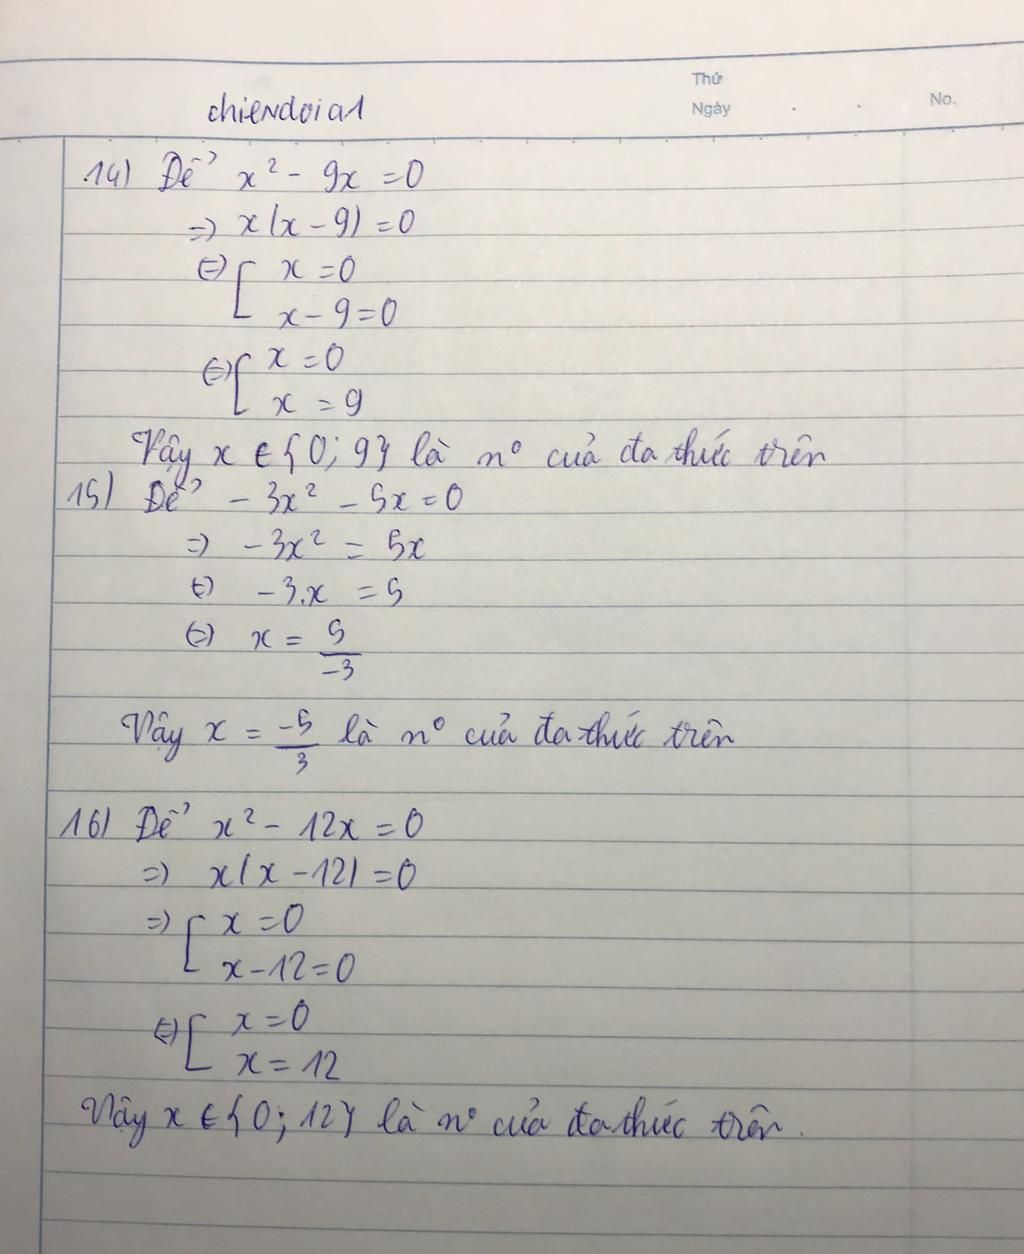 Thứ
Ngày . . No.
chiendoia1
14) Để x² - 9x = 0
=> x(x - 9) = 0
(=) [ x = 0
x - 9 = 0
(=) [ x = 0
x = 9
Vậy x ∈ {0; 9} là n° của đa thức trên
15) Để - 3x² - 5x = 0
=> - 3x² = 5x
(=) - 3.x = 5
(=) x = 5/-3
Vậy x = -5/3 là n° của đa thức trên
16) Để x² - 12x = 0
=> x(x - 12) = 0
=> [ x = 0
x - 12 = 0
(=) [ x = 0
x = 12
Vậy x ∈ {0; 12} là n° của đa thức trên.